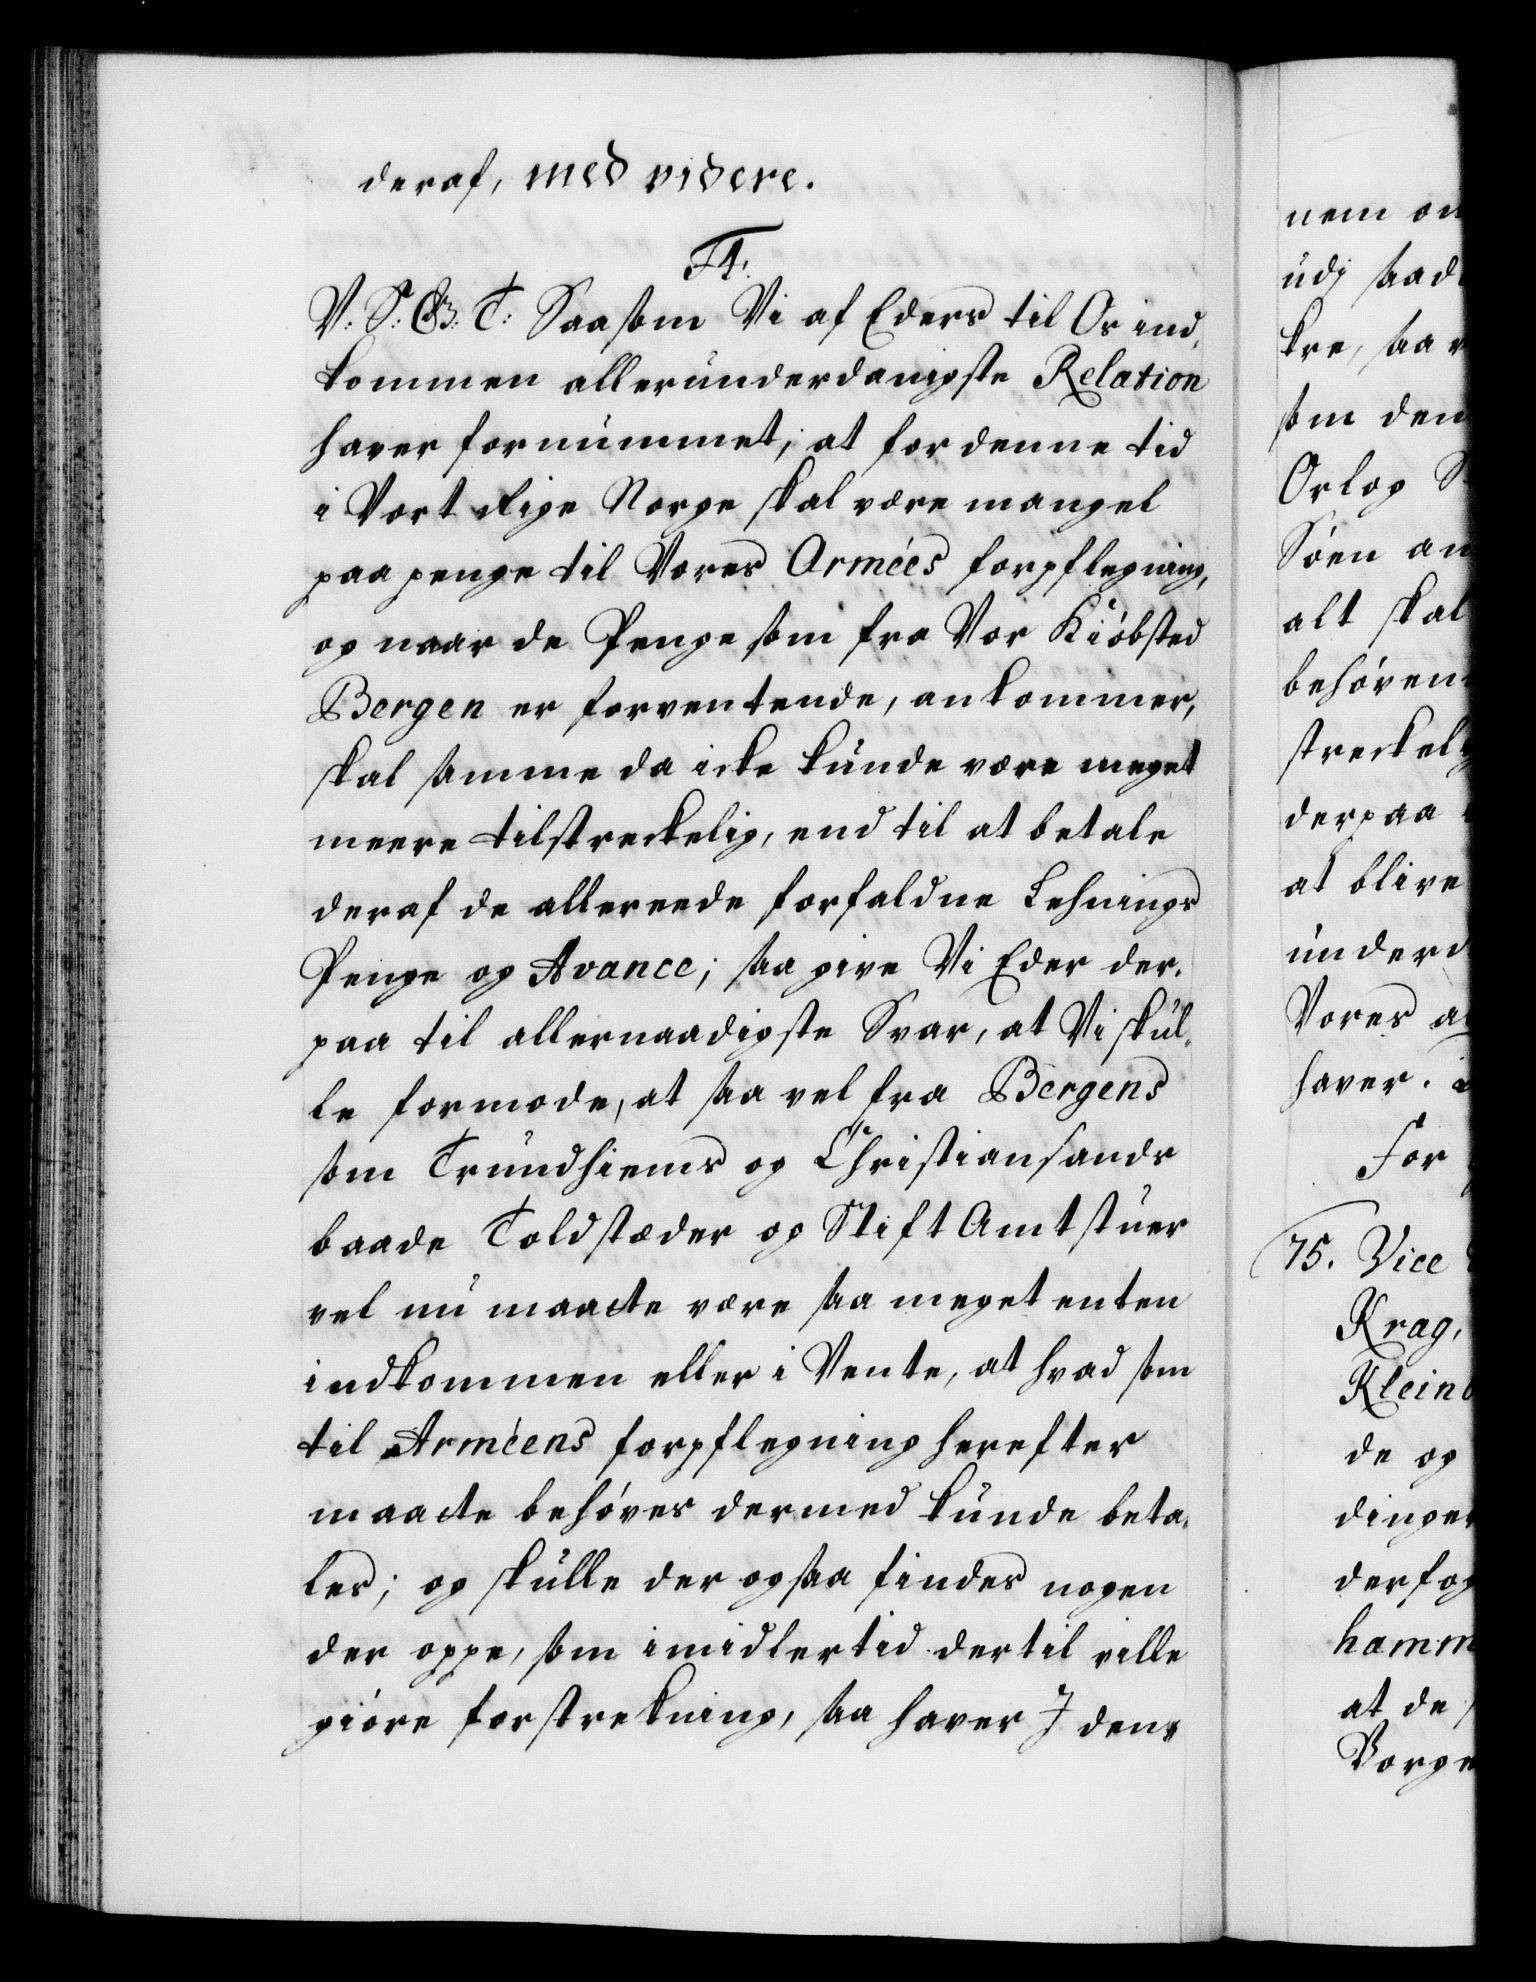 deraf, med videre.
F4.
V: S: G: T: Saasom Vi af Eders til Os ind,
kommen allerunderdanigste Relation
haver fornummet, at for denne tid
i Vort Rige Norge skal være mangel
paa penge til Vores Armées forpflegning,
og naar de Penge som fra Vor Kiöbsted
Bergen er forventende, ankommer,
skal samme da icke kunde være meget
meere tilstreckelig, end til at betale
deraf de allereede forfaldne Lehnings
Penge og Avance; saa give Vi Eder der,
paa til allernaadigste Svar, at Vi skul,
le formode, at saa vel fra Bergens
som Trundhiems og Christiansands
baade Toldstæder og Stift Amtstuer
vel nu maatte være saa meget enten
indkommen eller i Vente, at hvad som
til Arméens forpflegning herefter
maatte behöves dermed kunde beta,
les; og skulle der ogsaa findes nogen
der oppe, som imidlertid dertil ville
giöre forstrekning, saa haver I den,
nem
udj saad
kre, saa
som den
Orlog
Söen an
alt skal
behöven
streckel
derpaa
at blive
underd
Vores a
haver.
For
75. Vice
Krag,
Klein
de og
dinger
derfog
hamm
at de
Borge